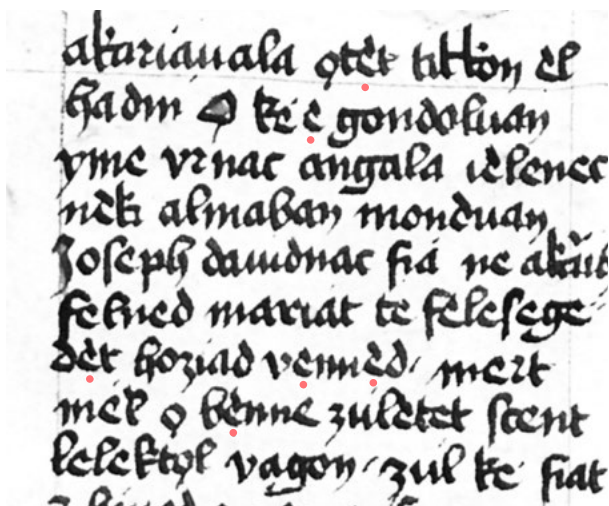 akariauala ǫtèt titkon èl
hadni Ǫ kè è gondoluan
ymè vrnac angala ièlenèc
nèki almaban monduan
Joseph dauidnac fia ne
felned mariat te fèlesege
dèt hoziad vènnèd mert
mèl ǫ bènne zulètet scent
lèlektǫl vagon zul kè fiat